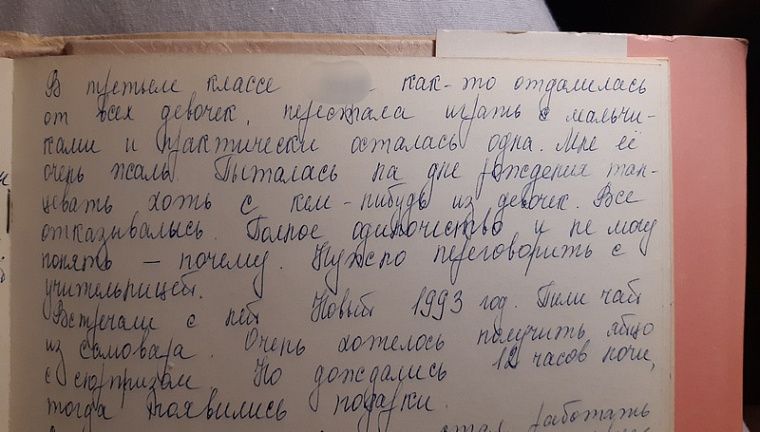 В третьем классе как-то отдалилась
от всех девочек, перестала играть с мальчи-
ками и практически осталась одна. Мне её
очень жаль. Пыталась на дне рождения тан-
цевать хоть с кем-нибудь из девочек. Все
отказывались. Полное одиночество и не могу
понять – почему. Нужно переговорить с
учительницей.
Встречали с ней Новый 1993 год. Пили чай
из самовара. Очень хотелось получить яйцо
с сюрпризом. Но дождались 12 часов ночи,
тогда появились подарки.
стал работать